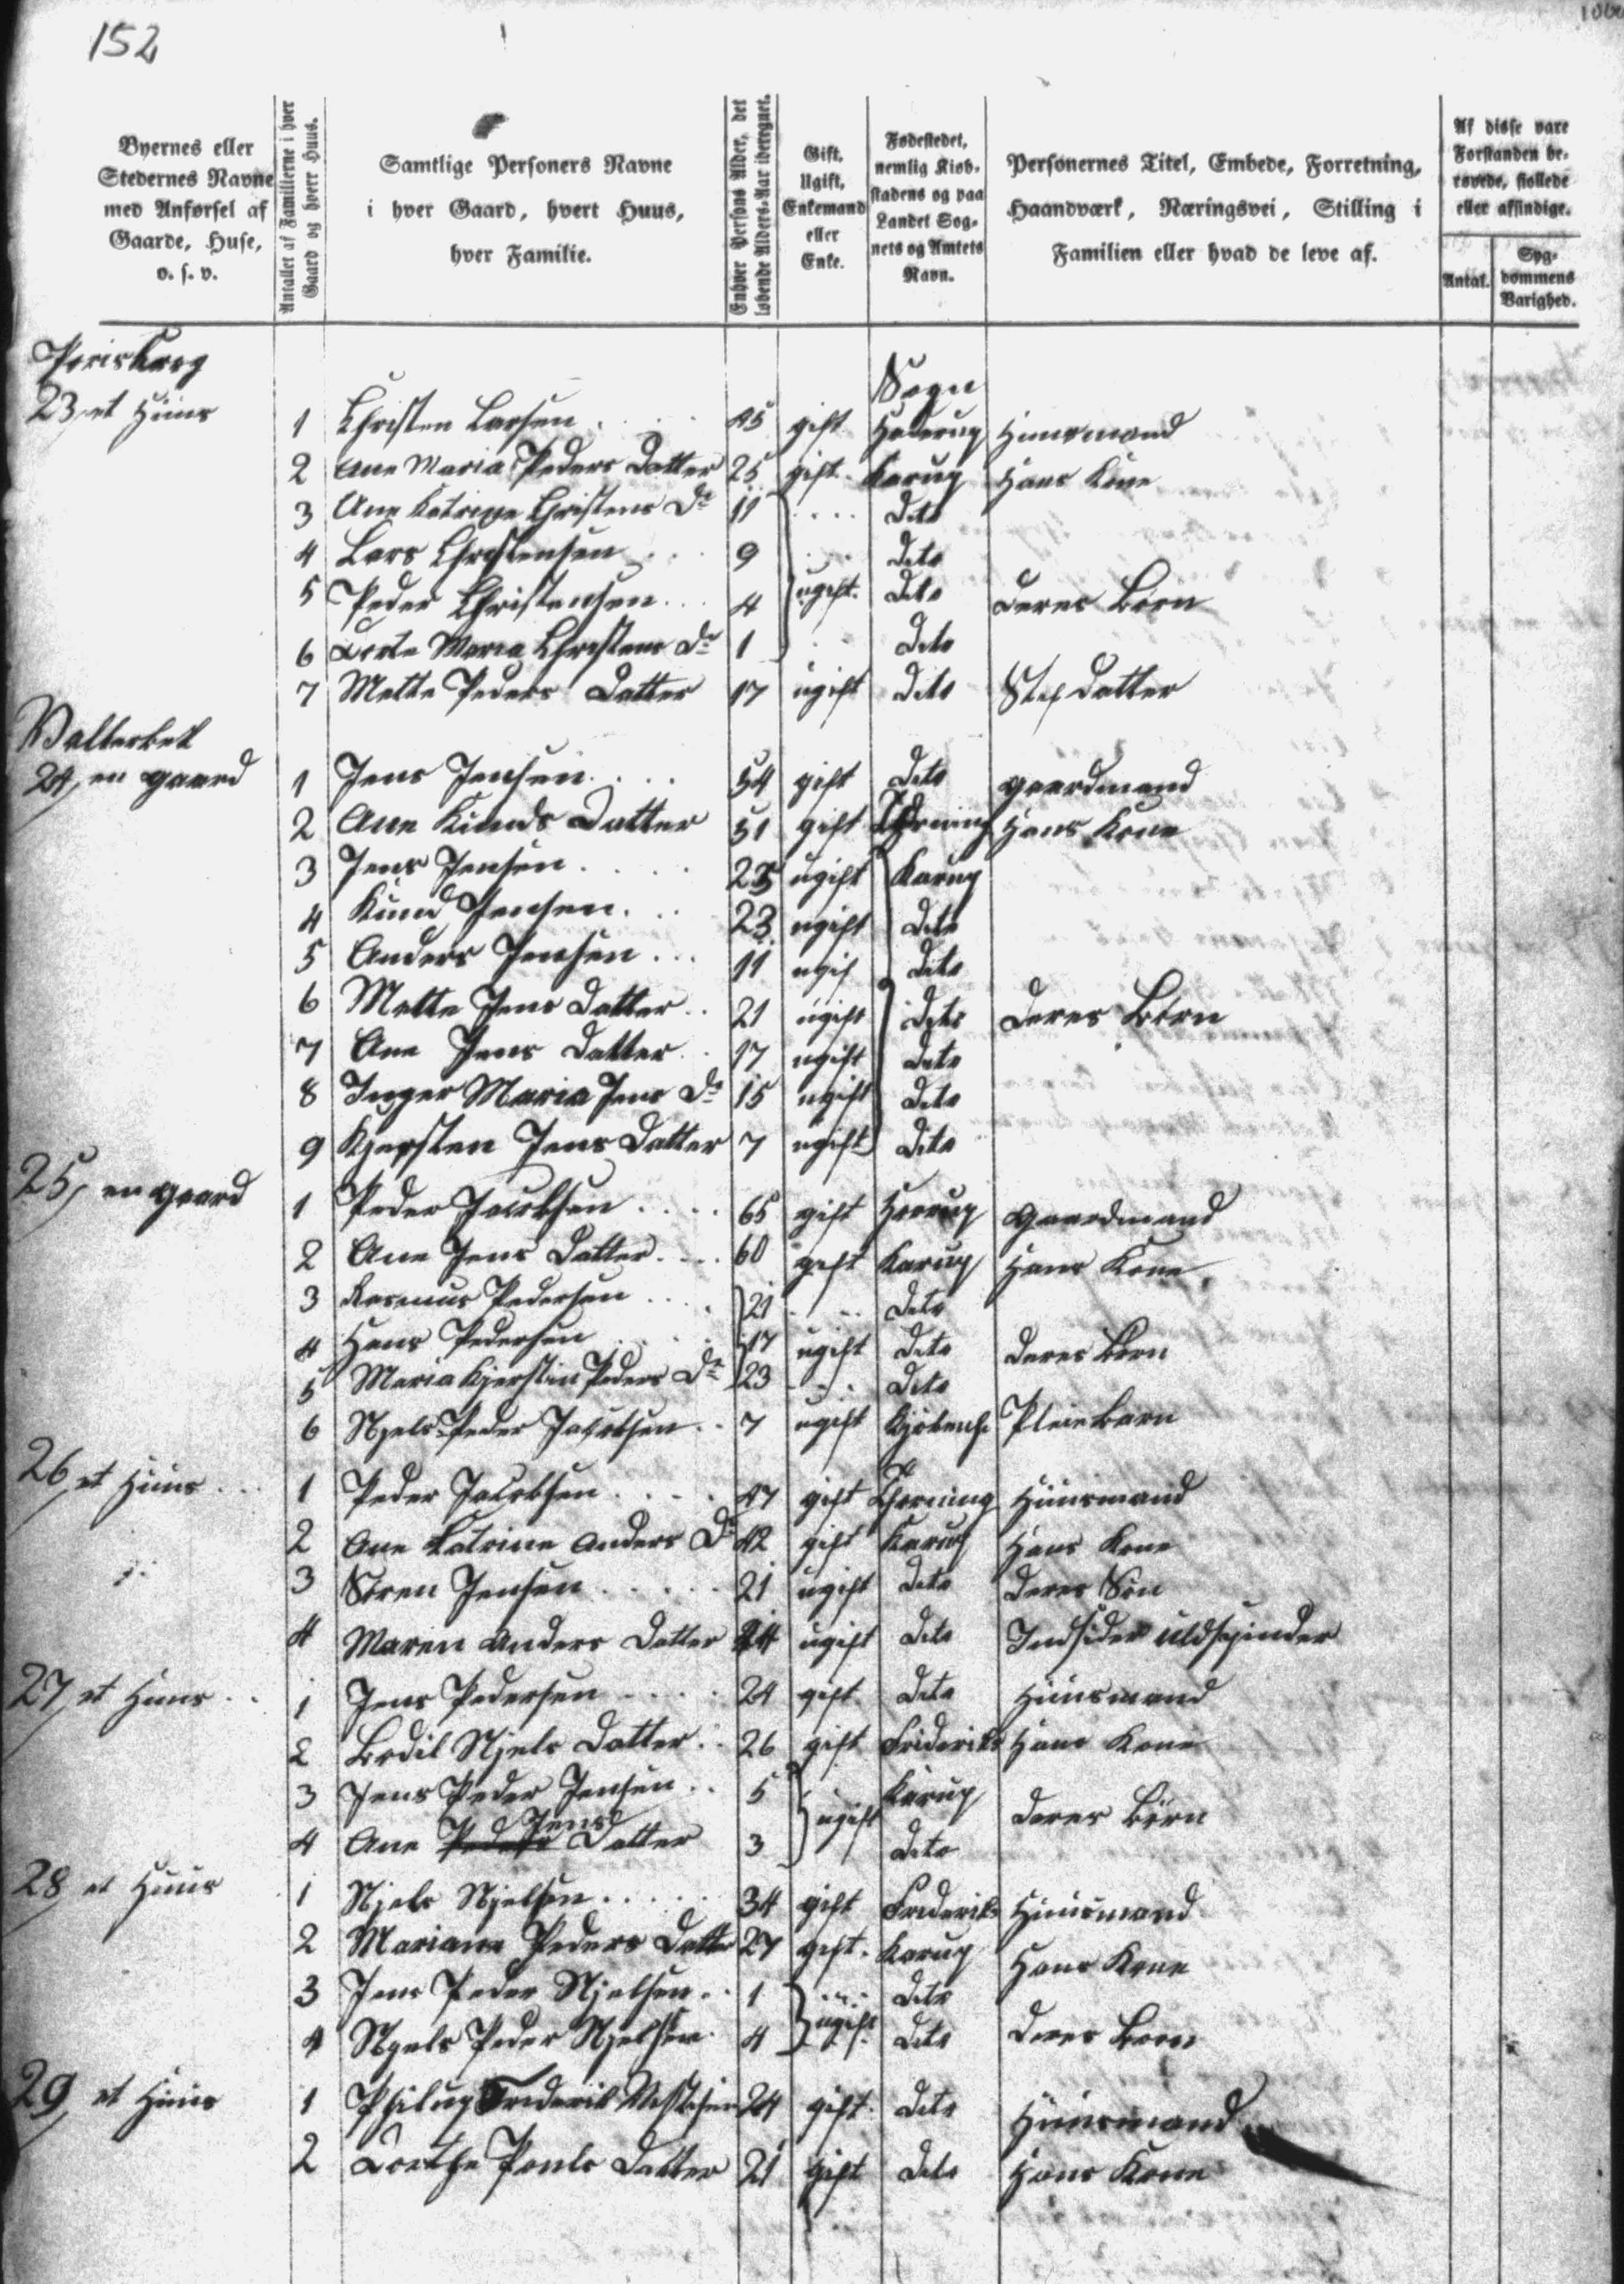 152
Byernes eller Stedernes Navne med Anførsel af Gaarde, Huse, o. s. v.
Antallet af Familierne i hver Gaard og hvert Huus.
Samtlige Personers Navne i hver Gaard, hvert Huus, hver Familie.
Enhver Persons Alder, det løbende Alders-Aar iberegnet.
Gift, Ugift, Enkemand eller Enke.
Fødestedet, nemlig Kiøbstadens og paa Landet Sognets og Amtets Navn.
Personernes Titel, Embede, Forretning, Haandværk, Næringsvei, Stilling i Familien eller hvad de leve af.
Af disse vare Forstanden berøvede, fiollede eller afsindige.
Antal.
Sygdommens Varighed.
Sogn
23, et Huus 1 Christen Larsen 45 gift Haderup Huusmand
2 Ane Maria Peders Datter 25 gift Karup Hans Kone
3 Ane Katrine Christens Dr 11 Dito
4 Lars Christensen 9 Dito
5 Peder Christensen 4 ugift Dito Deres Børn
6 Dorte Maria Christens Dr 1 Dito
7 Mette Peders Datter 17 ugift Dito Stifdatter
24, en gaard 1 Jens Jensen 54 gift Dito gaardmand
2 Ane Kunds Datter 51 gift Thorning Hans Kone
3 Jens Jensen 25 ugift Karup
4 Kund Jensen 23 ugift Dito
5 Anders Jensen 11 ugif Dito
6 Mette Jens Datter 21 ugift Dito Deres Børn
7 Ane Jens Datter 17 ugift Dito
8 Inger Maria Jens Dr 15 ugift Dito
9 Kjersten Jens Datter 7 ugift Dito
25, en gaard 1 Peder Jacobsen 65 gift gaardmand
2 Ane Jens Datter 60 gift Karup Hans Kone
3 Rasmus Pedersen 21 Dito
4 Hans Pedersen 17 ugift Dito Deres Børn
5 Maria Kjerstin Peders Dr 23 Dito
6 Njels Peder Jacobsen 7 ugift Kjøbenh. Pleiebarn
26, et Huus 1 Peder Jacobsen 47 gift Thorning Huusmand
2 Ane Katrine Anders Dr 42 gift Karup Hans Kone
3 Søren Jensen 21 ugift Dito Deres Søn
4 Maren Anders Datter ugift Dito Indsider uldspinder
27, et Huus 1 Jens Pedersen 24 gift Dito Huusmand
2 Bodil Njels Datter 26 gift Frideriks Hans Kone
3 Jens Peder Jensen 5 Karup
4 Ane Jens Datter 3 ugift Dito Deres Børn
28 et Huus 1 Njels Njelsen 34 gift Frideriks Huusmand
2 Mariane Peders Datter 27 gift Karup Hans Kone
3 Jens Peder Njelsen 1 Dito
4 Njels Peder Njelsen 4 ugift Dito Deres Børn
29, et Huus 1 Philup Friderik 24 gift Dito Huusmand
2 Dorthe Pouls Datter 21 gift Dito Hans Kone